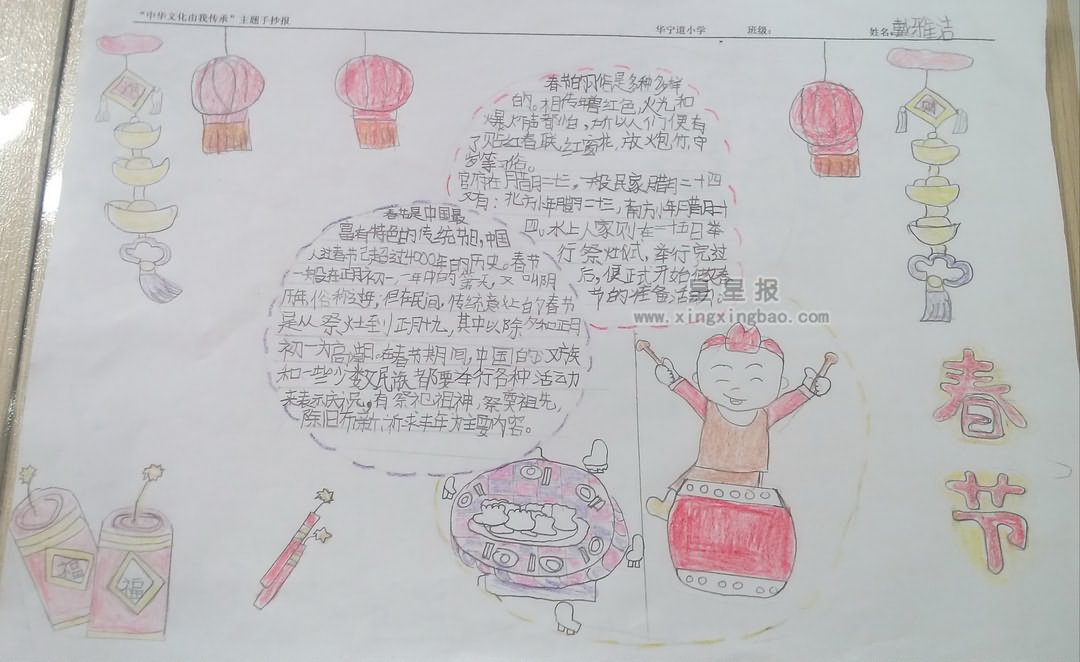 “中华文化由我传承”主题手抄报
华宁道小学
班级:
姓名:戴雅洁
春节的习俗是多种多样
的。相传年兽红色,火光和
爆炸声都怕,所以人们便有
了贴红春联,红窗花,放炮竹,守
岁等习俗。
官府在月腊月二十三,一般民家腊月二十四
又有:北方小年腊月二十三,南方小年月腊月二十
四,水上人家则在二十五日举
行祭灶仪式,举行完过
后,便正式开始做春
节的准备活动。
春节是中国最
富有特色的传统节日,中国
人过春节已超过4000年的历史。春节
一般在正月初一,一年中的第一天,又叫阴
历年,俗称过年,但在民间,传统意义上的春节
是从祭灶至到正月十九,其中以除夕和正月
初一为高潮。在春节期间,中国的汉族
和一些少数民族都要举行各种活动
来表示庆祝,有祭祀祖神,祭奠祖先,
除旧布新,祈求丰年为主要内容。
星星报
www.xingxingbao.com
春
节
福
福